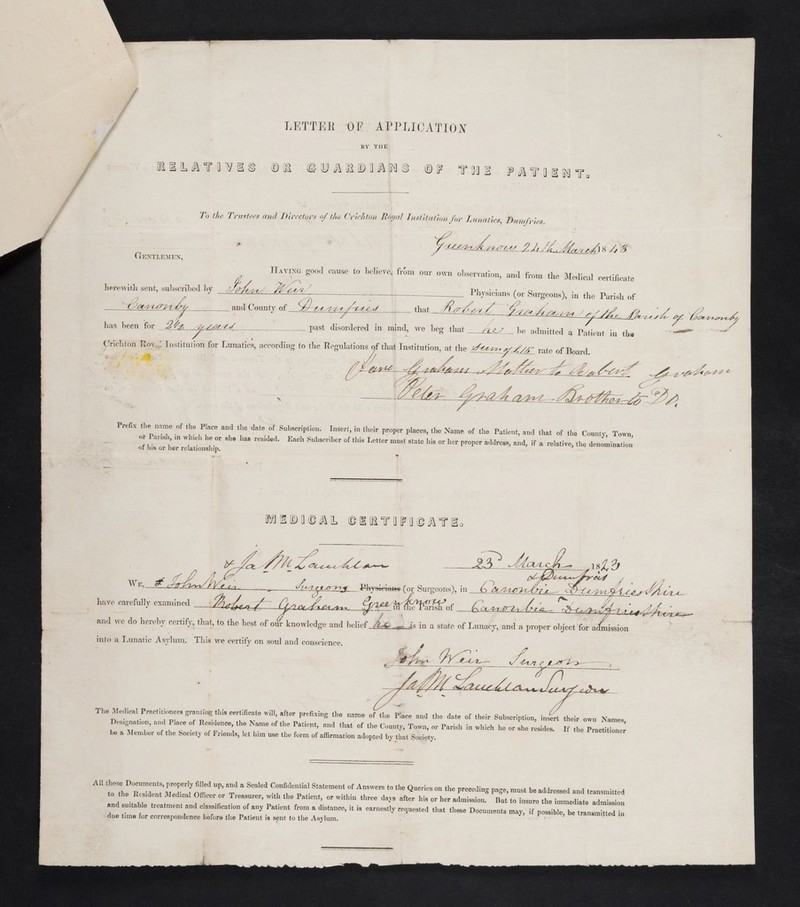 LETTER OF APPLICATION
BY THE
RELATIVES OR GUARDIANS OF THE PATIENT.
To the Trustees and Directors of the Crichton Royal Institution for Lunatics, Dumfries.
Greenknow 24th March 1848
GENTLEMEN,
HAVING good cause to believe, from our own observation, and from the Medical certificate
herewith sent, subscribed by John Weir Physicians (or Surgeons), in the Parish of
Canonby and County of Dumfries that Robert Graham of the Parish of Canonby
has been for 2½ years past disordered in mind, we beg that he be admitted a Patient in the
Crichton Roy Institution for Lunatics, according to the Regulations of that Institution, at the Sum of £15 rate of Board.
Jane Graham Mother to Robert Graham
Peter Graham Brother to Do.
Prefix the name of the Place and the date of Subscription. Insert, in their proper places, the Name of the Patient, and that of the County, Town,
or Parish, in which he or she has resided. Each Subscriber of this Letter must state his or her proper address, and, if a relative, the denomination
of his or her relationship.
MEDICAL CERTIFICATE.
& Ja McLauchlan 23d March 18
& Dumfries
WE, John Weir Surgeons Physicians (or Surgeons), in Canonbie Dumfriesshire
have carefully examined Robert Graham Greenknow in the Parish of Canonbie Dumfriesshire
and we do hereby certify, that, to the best of our knowledge and belief he is in a state of Lunacy, and a proper object for admission
into a Lunatic Asylum. This we certify on soul and conscience.
John Weir Surgeon.
Ja McLauchlan Surgeon
The Medical Practitioners granting this certificate will, after prefixing the name of the Place and the date of their Subscription, insert their own Names,
Designation, and Place of Residence, the Name of the Patient, and that of the County, Town, or Parish in which he or she resides. If the Practitioner
be a Member of the Society of Friends, let him use the form of affirmation adopted by that Society.
All these Documents, properly filled up, and a Sealed Confidential Statement of Answers to the Queries on the preceding page, must be addressed and transmitted
to the Resident Medical Officer or Treasurer, with the Patient, or within three days after his or her admission. But to insure the immediate admission
and suitable treatment and classification of any Patient from a distance, it is earnestly requested that these Documents may, if possible, be transmitted in
due time for correspondence before the Patient is sent to the Asylum.